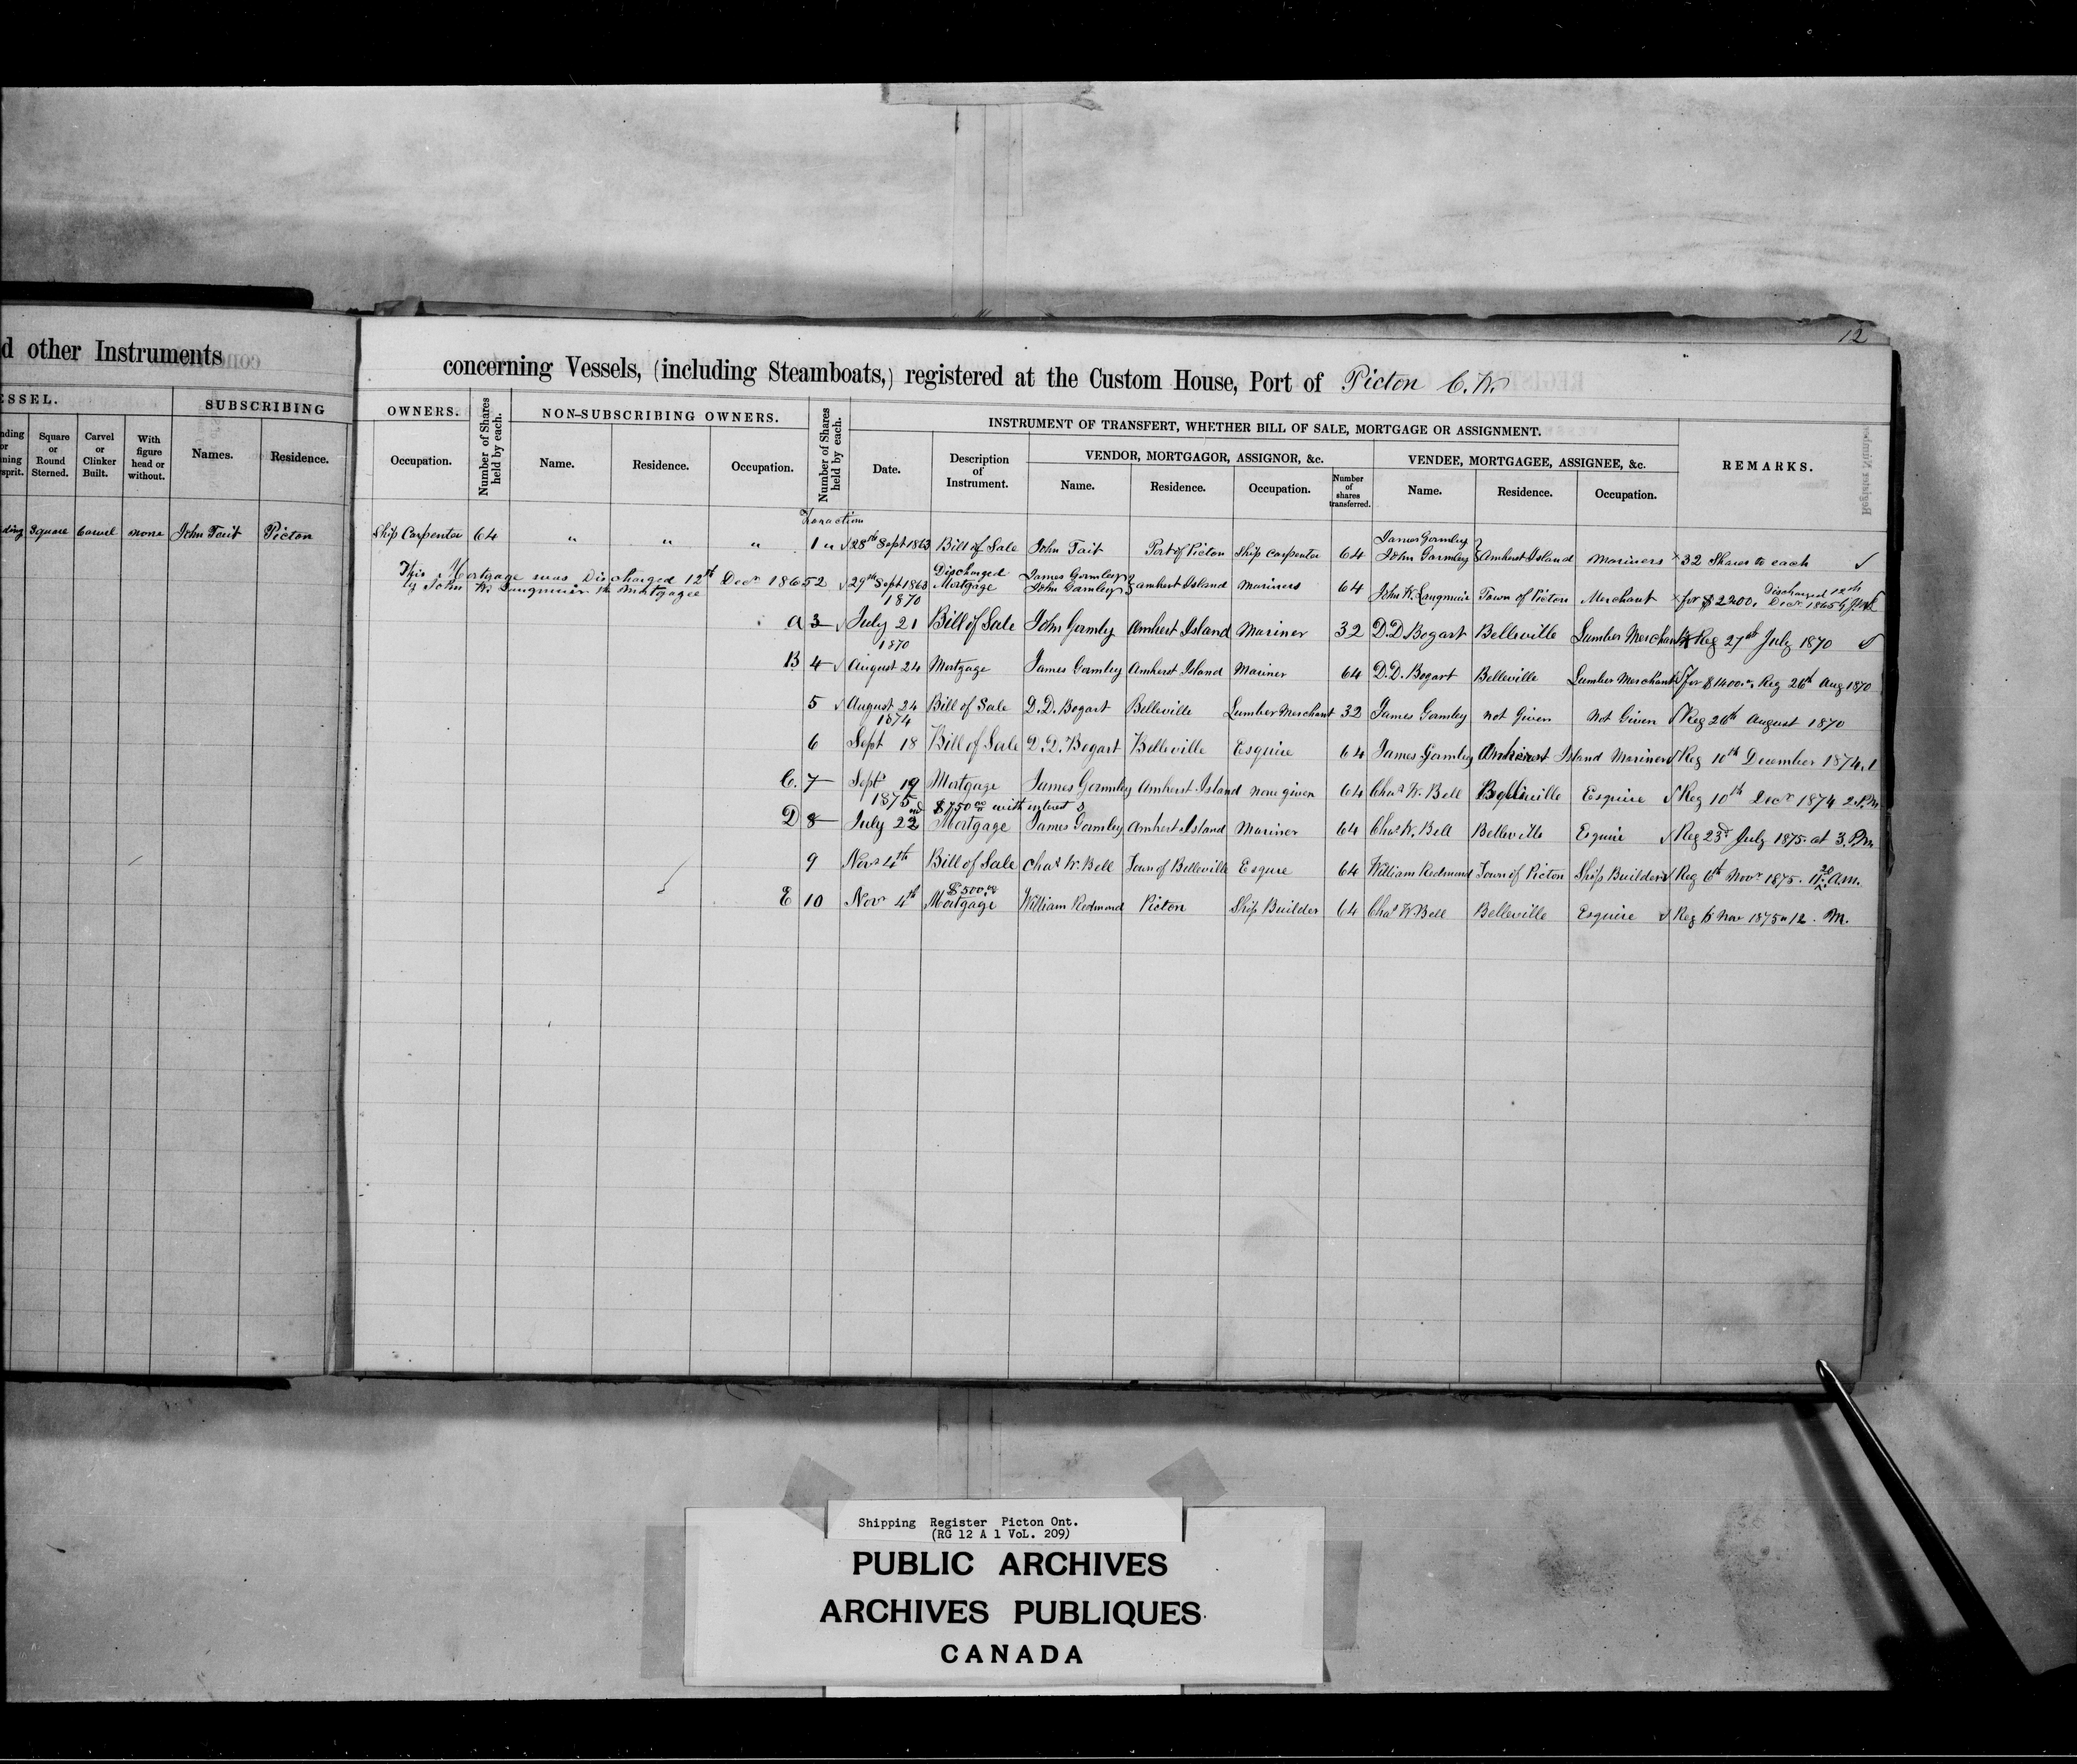 12
d other Instruments
concerning Vessels, (including Steamboats,) registered at the Custom House, Port of Picton C.W.
ESSEL.
SUBSCRIBING
OWNERS.
Number of Shares held by each.
NON-SUBSCRIBING OWNERS.
Number of Shares held by each.
INSTRUMENT OF TRANSFERT, WHETHER BILL OF SALE, MORTGAGE OR ASSIGNMENT.
REMARKS.
VENDOR, MORTGAGOR, ASSIGNOR, &c.
VENDEE, MORTGAGEE, ASSIGNEE, &c.
nding or ning sprit.
Square or Round Sterned.
Carvel or Clinker Built.
With figure head or without.
Names.
Residence.
Occupation.
Name.
Residence.
Occupation.
Date.
Description of Instrument.
Name.
Residence.
Occupation.
Number of shares transferred.
Name.
Residence.
Occupation.
ding Square Carvel none John Tait Picton Ship Carpenter 64 " " " 1 " 28th Sept 1863 Bill of Sale John Tait Port of Picton Ship Carpenter 64 James Gormley John Gormley } Amherst Island Mariners x 32 Shares to each
This Mortgage was Discharged 12th Decr 1865
by John K. Langmuir the Mortgagee
2 29th Sept 1863 Discharged Mortgage James Gormley John Gormley } Amherst Island Mariners 64 John K. Langmuir Town of Picton Merchant x for $2200. Discharged 12th Decr 1865
1870
a 3 July 21 Bill of Sale John Gormley Amherst Island Mariner 32 D.D Bogart Belleville Lumber Merchant Reg 27th July 1870
1870
B 4 August 24 Mortgage James Gormley Amherst Island Mariner 64 D.D. Bogart Belleville Lumber Merchant for $1400.00 Reg 26th Aug 1870
5 August 24 Bill of Sale D.D. Bogart Belleville Lumber Merchant 32 James Gormley not Given Not Given Reg 26th August 1870
1874
6 Sept 18 Bill of Sale D.D. Bogart Belleville Esquire 64 James Gormley Amherst Island Mariner Reg 10th December 1874.
C. 7 Sept 19 Mortgage James Gormley Amherst Island none given 64 Chas W. Bell Belleville Esquire Reg 10th Decr 1874 2 P.M
1875 $750.00 with interest
D 8 July 22nd Mortgage James Gormley Amherst Island Mariner 64 Chas W. Bell Belleville Esquire Reg 23rd July 1875 at 3. P.m
9 Novr 4th Bill of Sale Chas W. Bell Town of Belleville Esqure 64 William Redmond Town of Picton Ship Builder Reg 6th Novr 1875. 11.20 A.M.
$500.00
E 10 Novr 4th Mortgage William Redmond Picton Ship Builder 64 Chas W. Bell Belleville Esquire Reg 6 Nov 1875 " 12. M.
Shipping Register Picton Ont.
(RG 12 A 1 VoL. 209)
PUBLIC ARCHIVES
ARCHIVES PUBLIQUES
CANADA